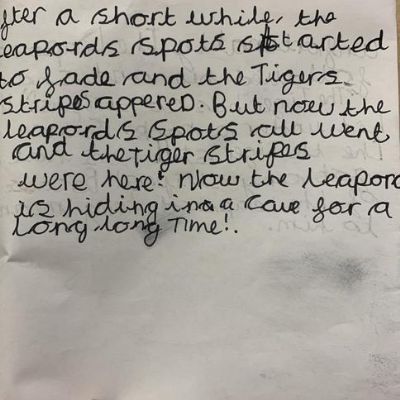 fter a short while, the
eapords spots started
to fade and the Tigers
stripes appered. But now the
leapords spots all went
and the tiger stripes
were here! Now the leapord
is hiding in a cave for a
Long long Time!.